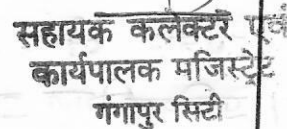 सहायक कलेक्टर एवं
कार्यपालक मजिस्ट्रेट
गंगापुर सिटी